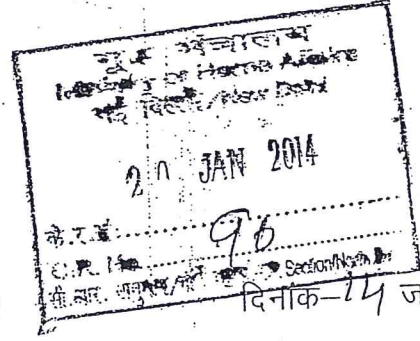 गृह मंत्रालय
Ministry of Home Affairs
नई दिल्ली/New Delhi
20 JAN 2014
के.र.सं.
C.R. No.
96
Section/North
दिनांक-14 ज